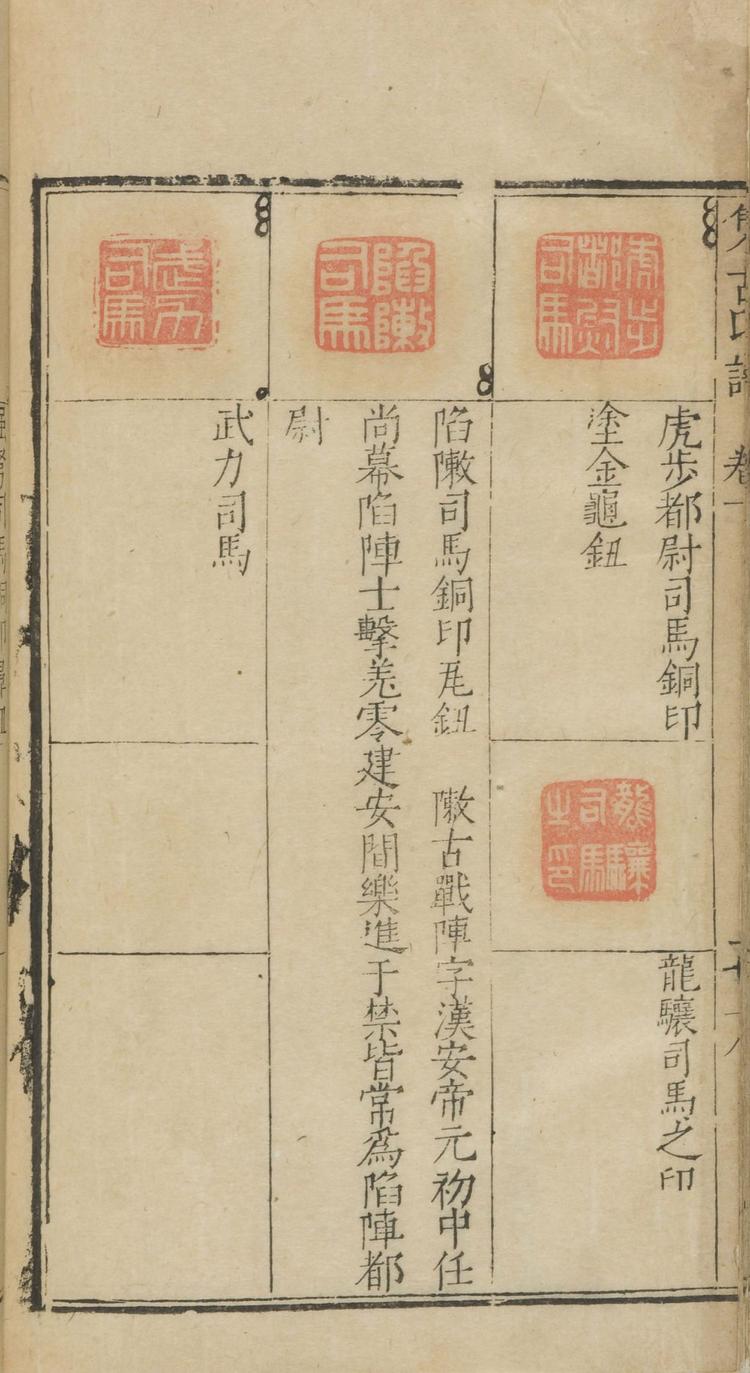 集古印譜 卷一
虎步都尉司馬
虎步都尉司馬銅印
塗金龜鈕
龍驤司馬之印
龍驤司馬之印
陷敶司馬
陷敶司馬銅印瓦鈕 敶古戰陣字漢安帝元初中任
尚募陷陣士擊羗零建安間樂進于禁皆常爲陷陣都
尉
武力司馬
武力司馬